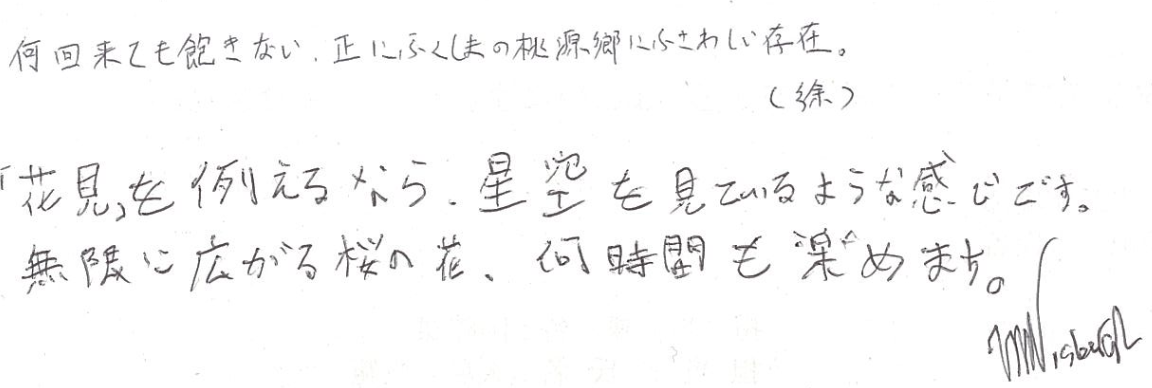 何回来ても飽きない、正にふくしまの桃源郷にふさわしい存在。
(徐)
「花見」を例えるなら、星空を見ているような感じです。
無限に広がる桜の花、何時間も楽めます。